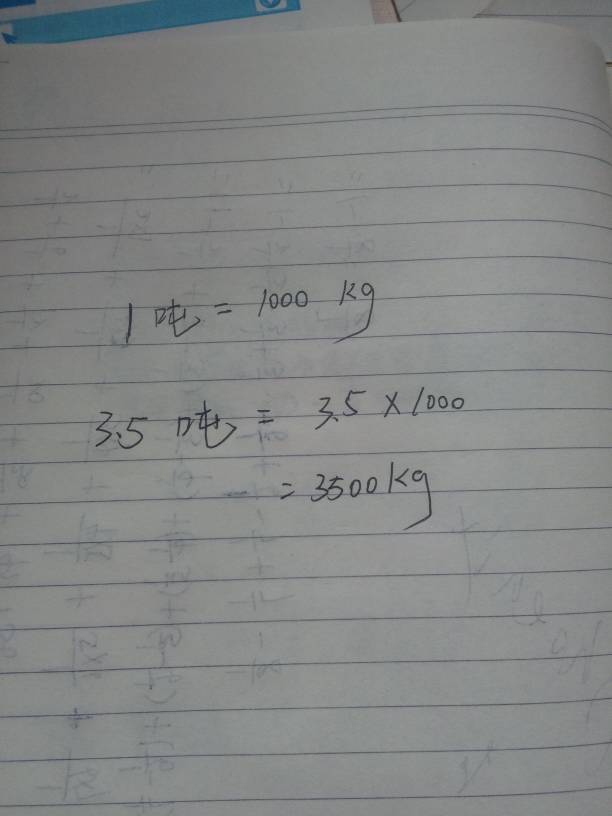 1 吨 = 1000 kg
3.5 吨 = 3.5 × 1000
= 3500kg